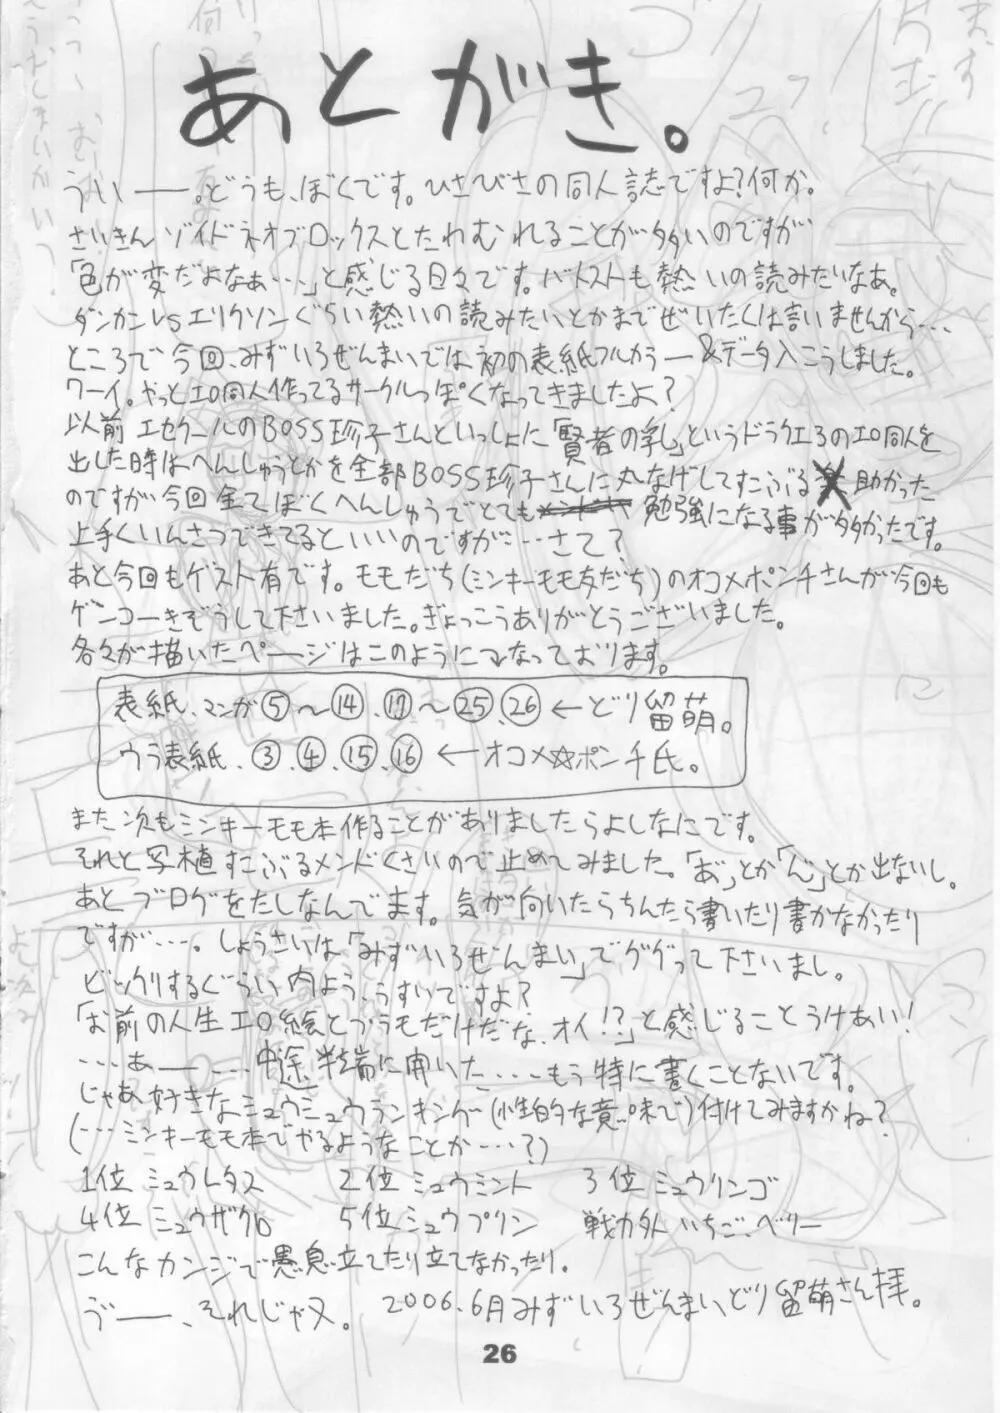 あとがき。
ういー。どうも、ぼくです。ひさびさの同人誌ですよ?何か。
さいきんゾイドネオブロックスとたわむれることが多いのですが
「色が変だよなぁ…」と感じる日々です。バトストも熱いの読みたいなあ。
ダンカンvsエリクソンぐらい熱いの読みたいとかまでぜいたくは言いませんから…
ところで今回、みずいろぜんまいでは初の表紙フルカラー&データ入こうしました。
ワーイ。やっとエロ同人作ってるサークルっぽくなってきましたよ?
以前エセクールのBOSS珍子さんといっしょに「賢者の乳」というドラクエ3のエロ同人を
出した時はへんしゅうとかを全部BOSS珍子さんに丸なげしてすこぶる 助かった
のですが今回全てぼくへんしゅうでとても 勉強になる事が多かったです。
上手くいんさつできてるといいのですが…さて?
あと今回もゲスト有です。モモだち(ミンキーモモ友だち)のオコメポンチさんが今回も
ゲンコーきぞうして下さいました。ぎょっこうありがとうございました。
各々が描いたページはこのようになっております。
表紙、マンガ⑤〜⑭、⑰〜㉕、㉖←どり留萌。
ウラ表紙、③、④、⑮、⑯←オコメ☆ポンチ氏。
また次もミンキーモモ本作ることがありましたらよしなにです。
それと写植すこぶるメンドくさいので止めてみました。「あ゛」とか「ん゛」とか出ないし。
あとブログをたしなんでます。気が向いたらちんたら書いたり書かなかったり
ですが…。しょうさいは「みずいろぜんまい」でググって下さいまし。
ビックリするぐらい内よううすいですよ?
「お前の人生エロ絵とプラモだけだな、オイ!?」と感じることうけあい!
…あー…中途半端に開いた…もう特に書くことないです。
じゃあ好きなミュウミュウランキング(性的な意味で)付けてみますかね?
(…ミンキーモモ本でやるようなことか…?)
1位 ミュウレタス 2位 ミュウミント 3位 ミュウリンゴ
4位 ミュウザクロ 5位 ミュウプリン 戦力外 いちご、ベリー
こんなカンジで愚息立てたり立てなかったり。
ゔー、それじゃヌ。 2006.6月みずいろぜんまい、どり留萌さん拝。
26